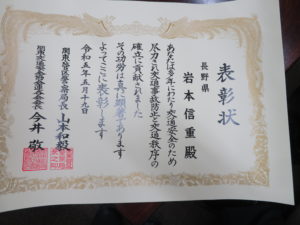 表彰状
長野県
岩本信重殿
あなたは多年にわたり交通安全のため
尽力され交通事故防止と交通秩序の
確立に貢献されました
その功労は真に顕著であります
よってここに表彰します
令和五年五月十九日
関東管区警察局長 山本和毅
関東交通安全協会連合会会長 今井 敬